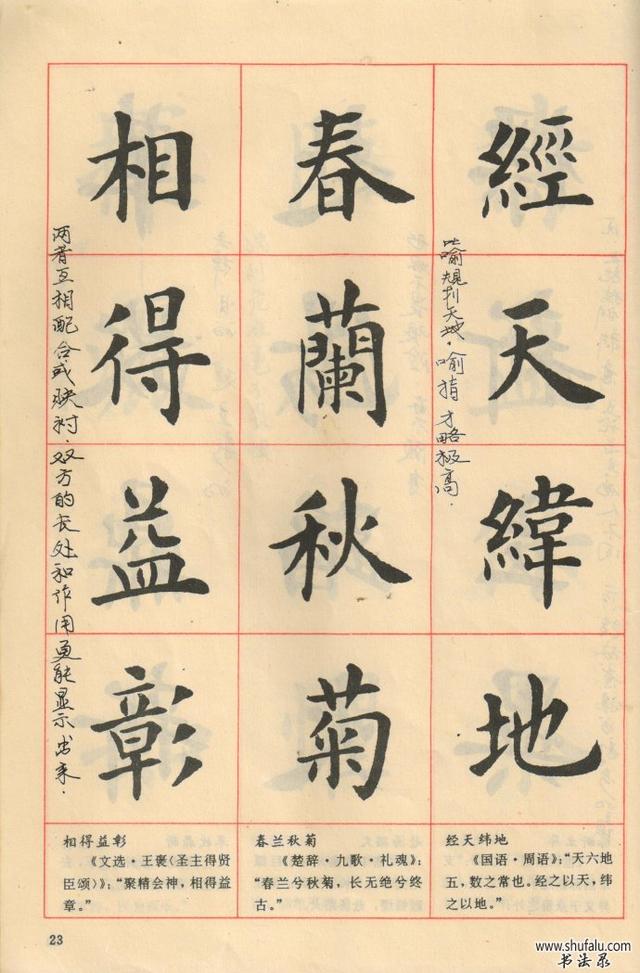 經天緯地
比喻规划天地。喻指才略极高.
春蘭秋菊
相得益彰
两者互相配合或映衬.双方的长处和作用更能显示出来.
相得益彰
《文选·王褒(圣主得贤
臣颂)》:“聚精会神,相得益
章。”
春兰秋菊
《楚辞·九歌·礼魂》:
“春兰兮秋菊,长无绝兮终
古。”
经天纬地
《国语·周语》:“天六地
五,数之常也。经之以天,纬
之以地。”
23
www.shufalu.com
书法录